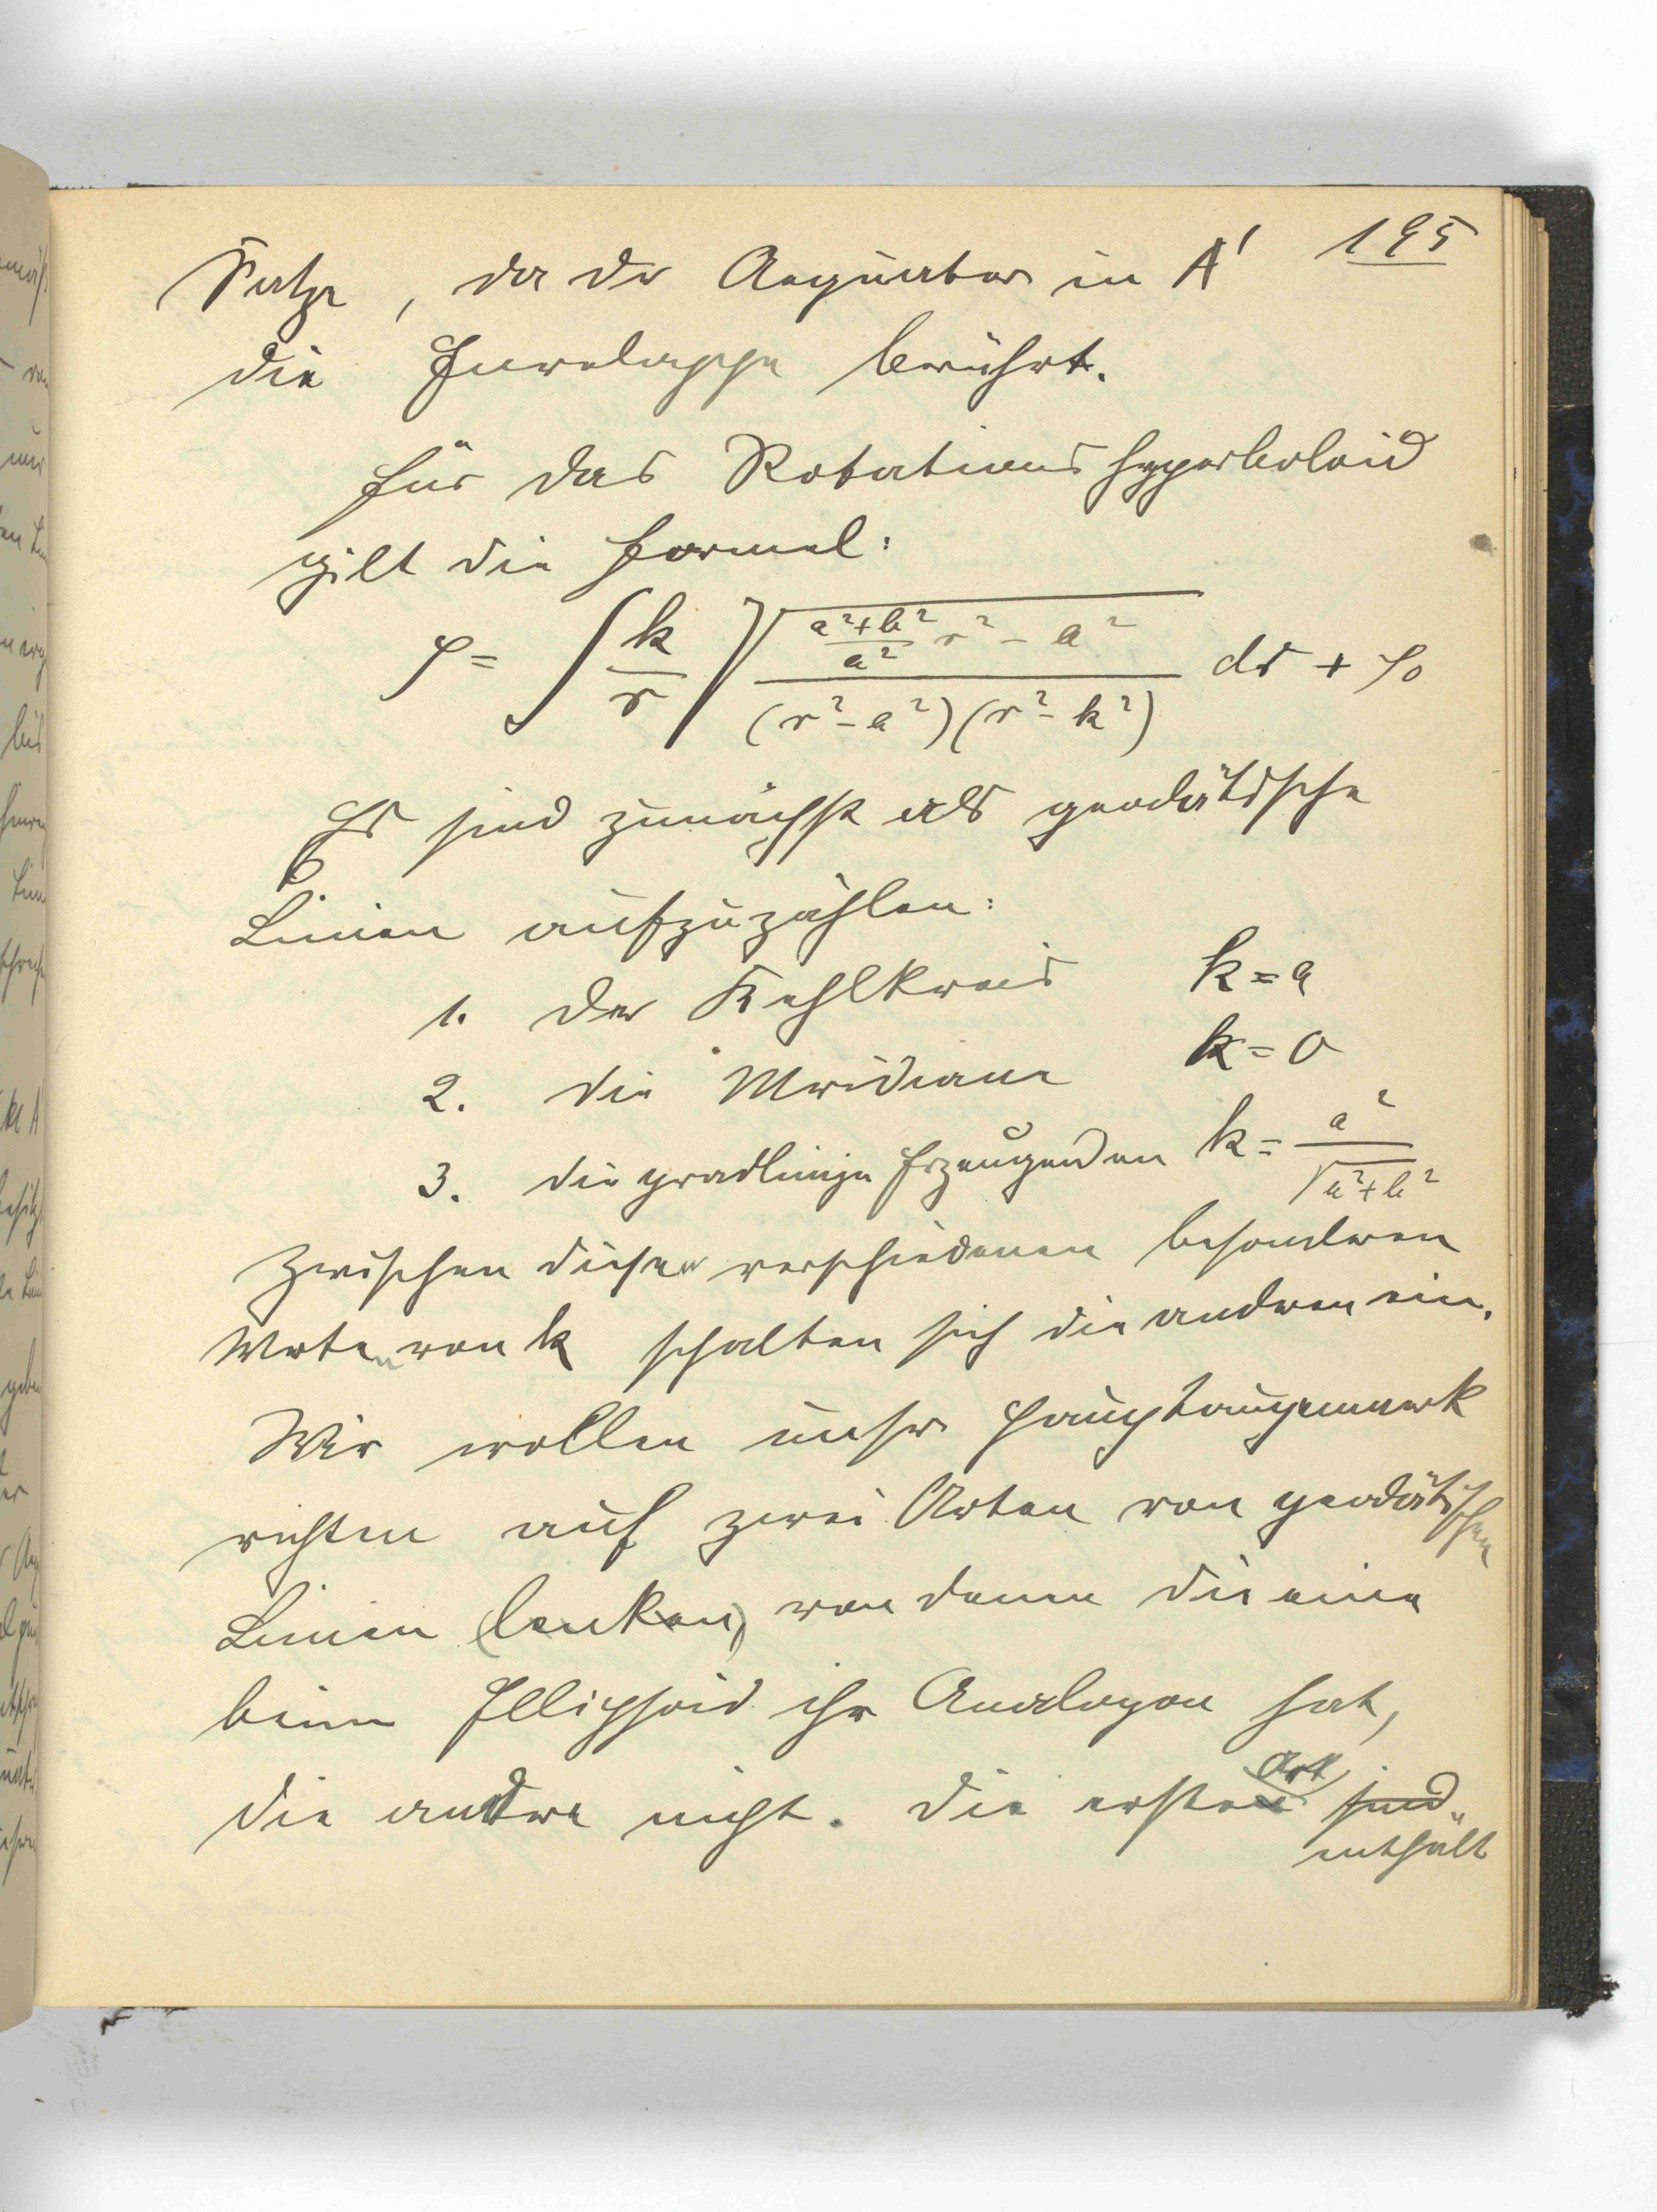 195
Satze, da der Aequator in A'
die Enveloppe berührt.
Für das Rotationshyperboloid
gilt die Formel:
φ = ∫ k/r √( ((a²+b²)/a² r² - a²) / ((r²-a²)(r²-k²)) ) dr + φ₀
Es sind zunächst als geodätische
Linien aufzuzählen:
1. der Kehlkreis k = a
2. die Meridiane k = 0
3. die gradlinige Erzeugenden k = a²/√(a²+b²)
Zwischen diesen verschiedenen besonderen
Werten von k schalten sich die andren ein.
Wir wollen unser Hauptaugenmerk
richten auf zwei Arten von geodätischen
Linien (lenken), von denen die eine
beim Ellipsoid ihr Analogon hat,
die andre nicht. Die erste Art sind
enthält